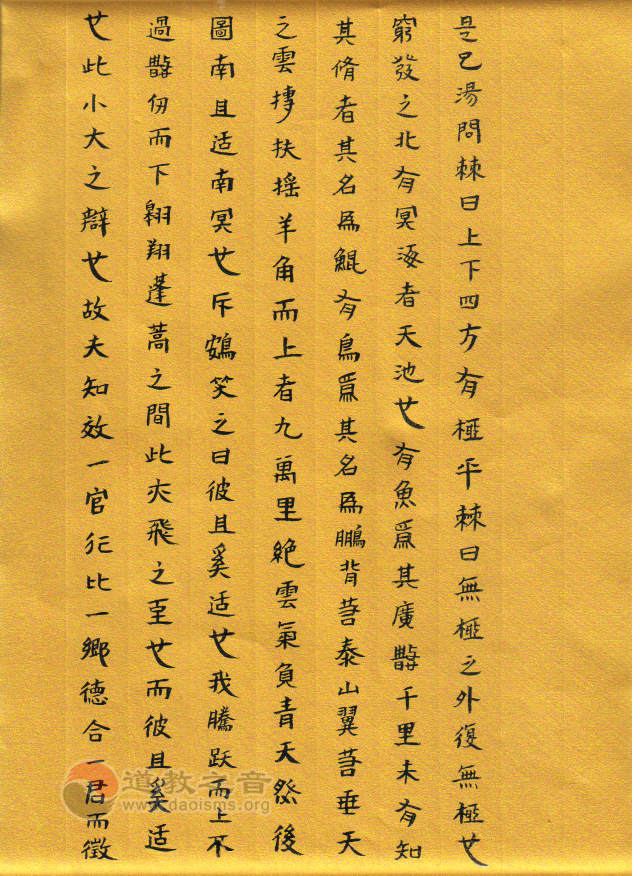 是已湯問棘曰上下四方有極乎棘曰無極之外復無極也
窮發之北有冥海者天池也有魚焉其廣數千里未有知
其脩者其名為鯤有鳥焉其名為鵬背若泰山翼若垂天
之雲摶扶搖羊角而上者九萬里絕雲氣負青天然後
圖南且适南冥也斥鴳笑之曰彼且奚适也我騰跃而上不
過數仞而下翱翔蓬蒿之間此亦飛之至也而彼且奚适
也此小大之辯也故夫知效一官行比一鄉德合一君而徵
道教之音
www.daoisms.org